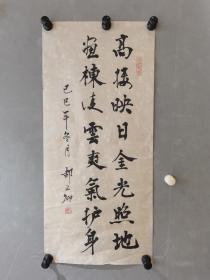 高楼映日金光照地
画栋连云爽气护身
己巳年冬月